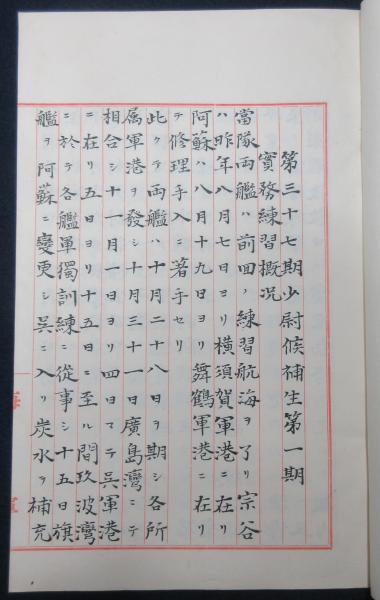 第三十七期少尉候補生第一期
實務練習概况
當隊両艦ハ前回ノ練習航海ヲ了リ宗谷
ハ昨年八月七日ヨリ横須賀軍港ニ在リ
阿蘇ハ八月十九日ヨリ舞鶴軍港ニ在リ
テ修理手入ニ著手セリ
此クテ両艦ハ十月二十八日ヲ期シ各所
属軍港ヲ發シ十月三十一日廣島灣ニテ
相合シ十一月一日ヨリ四日マテ呉軍港
ニ在リ五日ヨリ十五日ニ至ル間玖波灣
ニ於テ各艦單獨訓練ニ從事シ十五日旗
艦ヲ阿蘇ニ變更シ呉ニ入リ炭水ヲ補充
海
軍